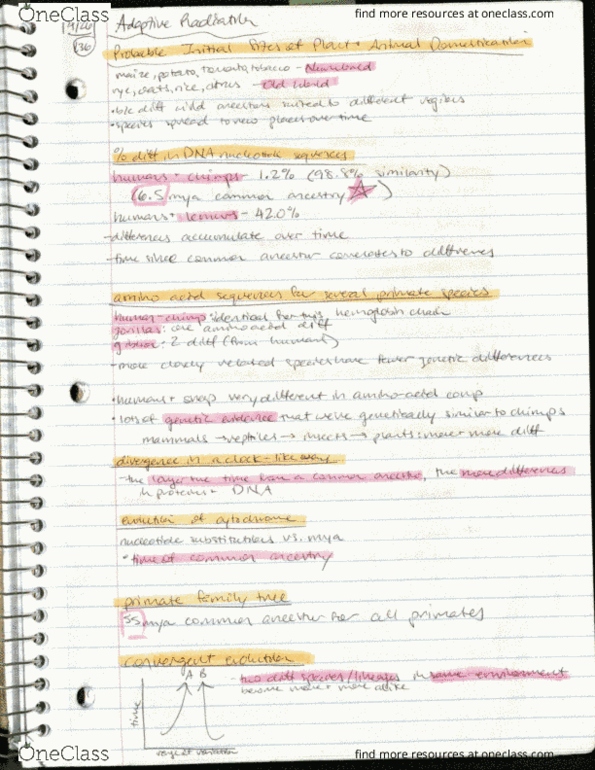 OneClass
find more resources at oneclass.com
Adaptive Radiation
(36)
Probable Initial Sites of Plant + Animal Domestication
maize, potato, tomato, tobacco - New World
rye, oats, rice, citrus - Old World
• b/c diff wild ancestors suited to different regions
• species spread to new places over time
% diff in DNA nucleotide sequences
humans + chimps - 1.2% (98.8% similarity)
(6.5 mya common ancestry ☆)
humans + lemurs - 42.0%
- differences accumulate over time
- time since common ancestor correlates to differences
amino acid sequences for several primate species
human-chimp: identical for this hemoglobin chain
gorillas: one amino acid diff
gibbon: 2 diff (from human)
- more closely related species have fewer genetic differences
• humans + very different in amino-acid comp
• lots of genetic evidence that we're genetically similar to chimps
mammals → reptiles → insects → plants: more + more diff
divergence in a clock-like way
- the longer the time from a common ancestor, the more differences
in proteins + DNA
evolution of cytochrome
nucleotide substitutions vs. mya
• time of common ancestry
primate family tree
55 mya common ancestor for all primates
convergent evolution
A B
- two diff species/lineages in same environment
become more + more alike
time
variation
OneClass
find more resources at oneclass.com